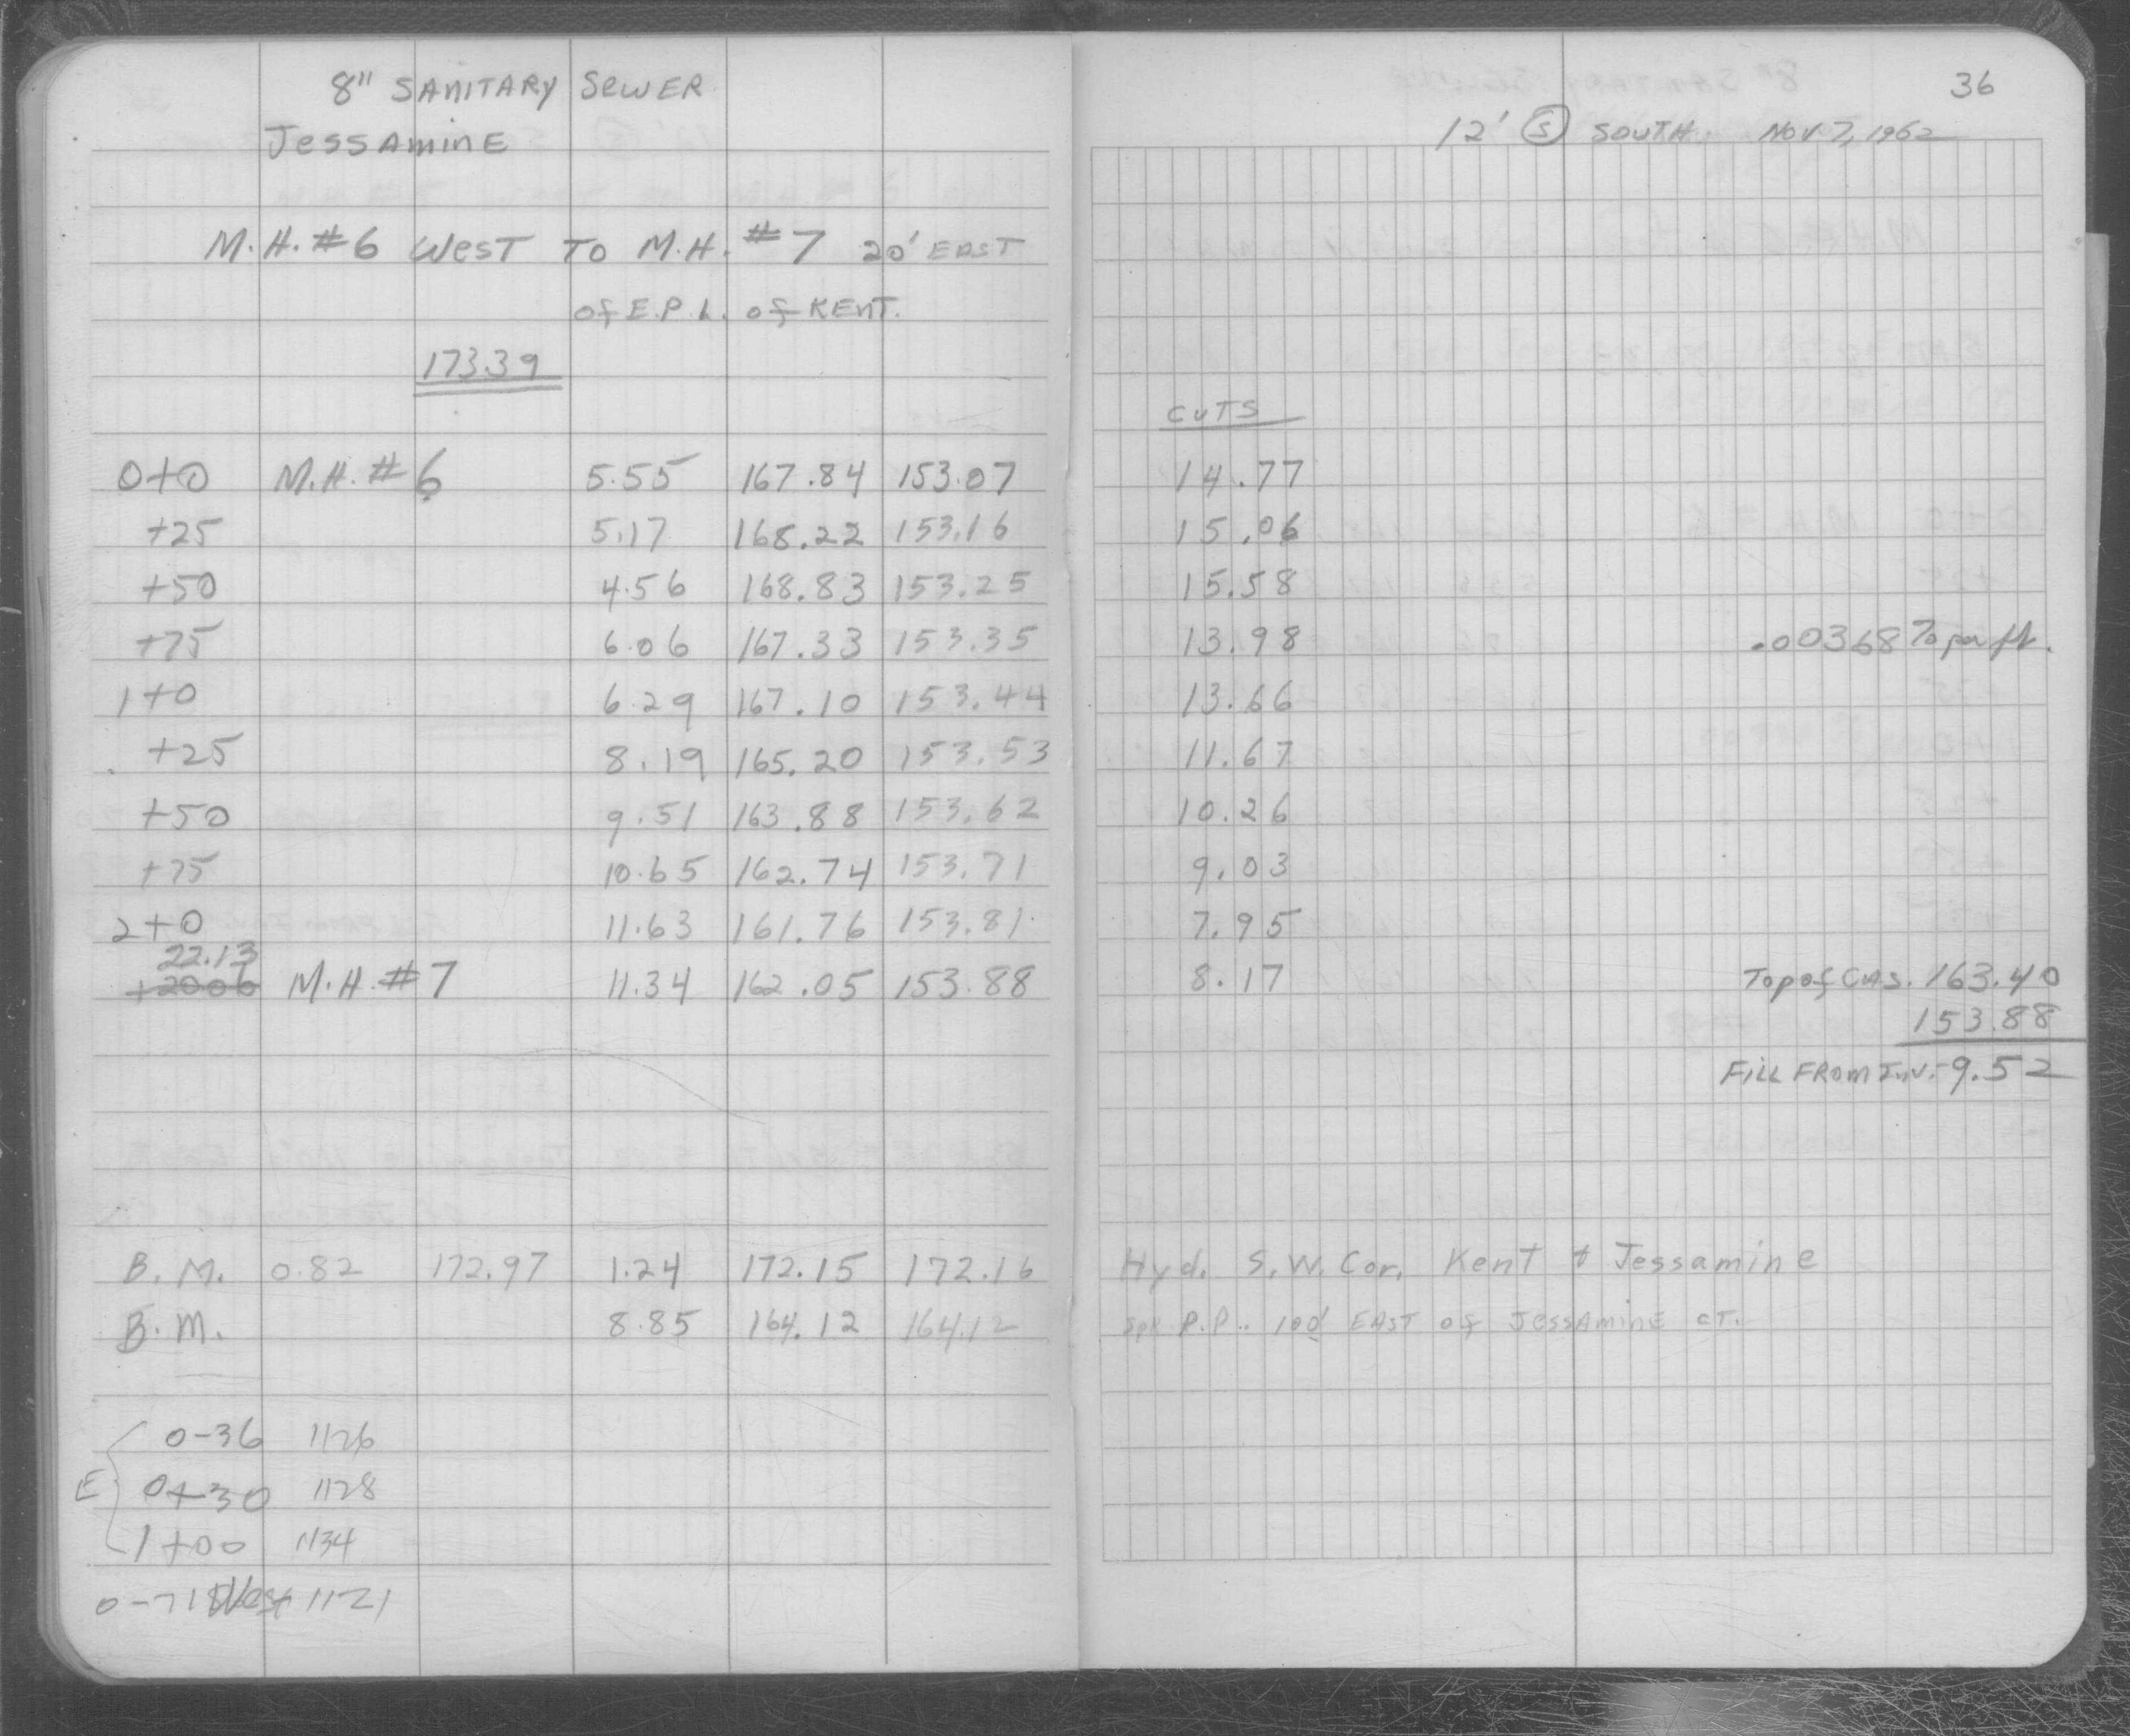 8" SANITARY SEWER
JESSAMINE
M.H. #6 WEST TO M.H. #7 20' EAST
of E.P.L. of KENT.
173.39
0+0 M.H. #6 5.55 167.84 153.07
+25 5.17 168.22 153.16
+50 4.56 168.83 153.25
+75 6.06 167.33 153.35
1+0 6.29 167.10 153.44
+25 8.19 165.20 153.53
+50 9.51 163.88 153.62
+75 10.65 162.74 153.71
2+0 11.63 161.76 153.81
22.13
+2006 M.H. #7 11.34 162.05 153.88
B.M. 0.82 172.97 1.24 172.15 172.16
B.M. 8.85 164.12 164.12
0-36 1126
E 0+30 1128
1+00 1134
0-71 West 1121
36
12' S SOUTH. NOV 7, 1962
CUTS
14.77
15.06
15.58
13.98 .00368 % per ft.
13.66
11.67
10.26
9.03
7.95
8.17 Top of CAS. 163.40
153.88
FILL FROM INV. - 9.52
Hyd. S.W. Cor. Kent & Jessamine
Spk P.P. 100' EAST of JESSAMINE CT.